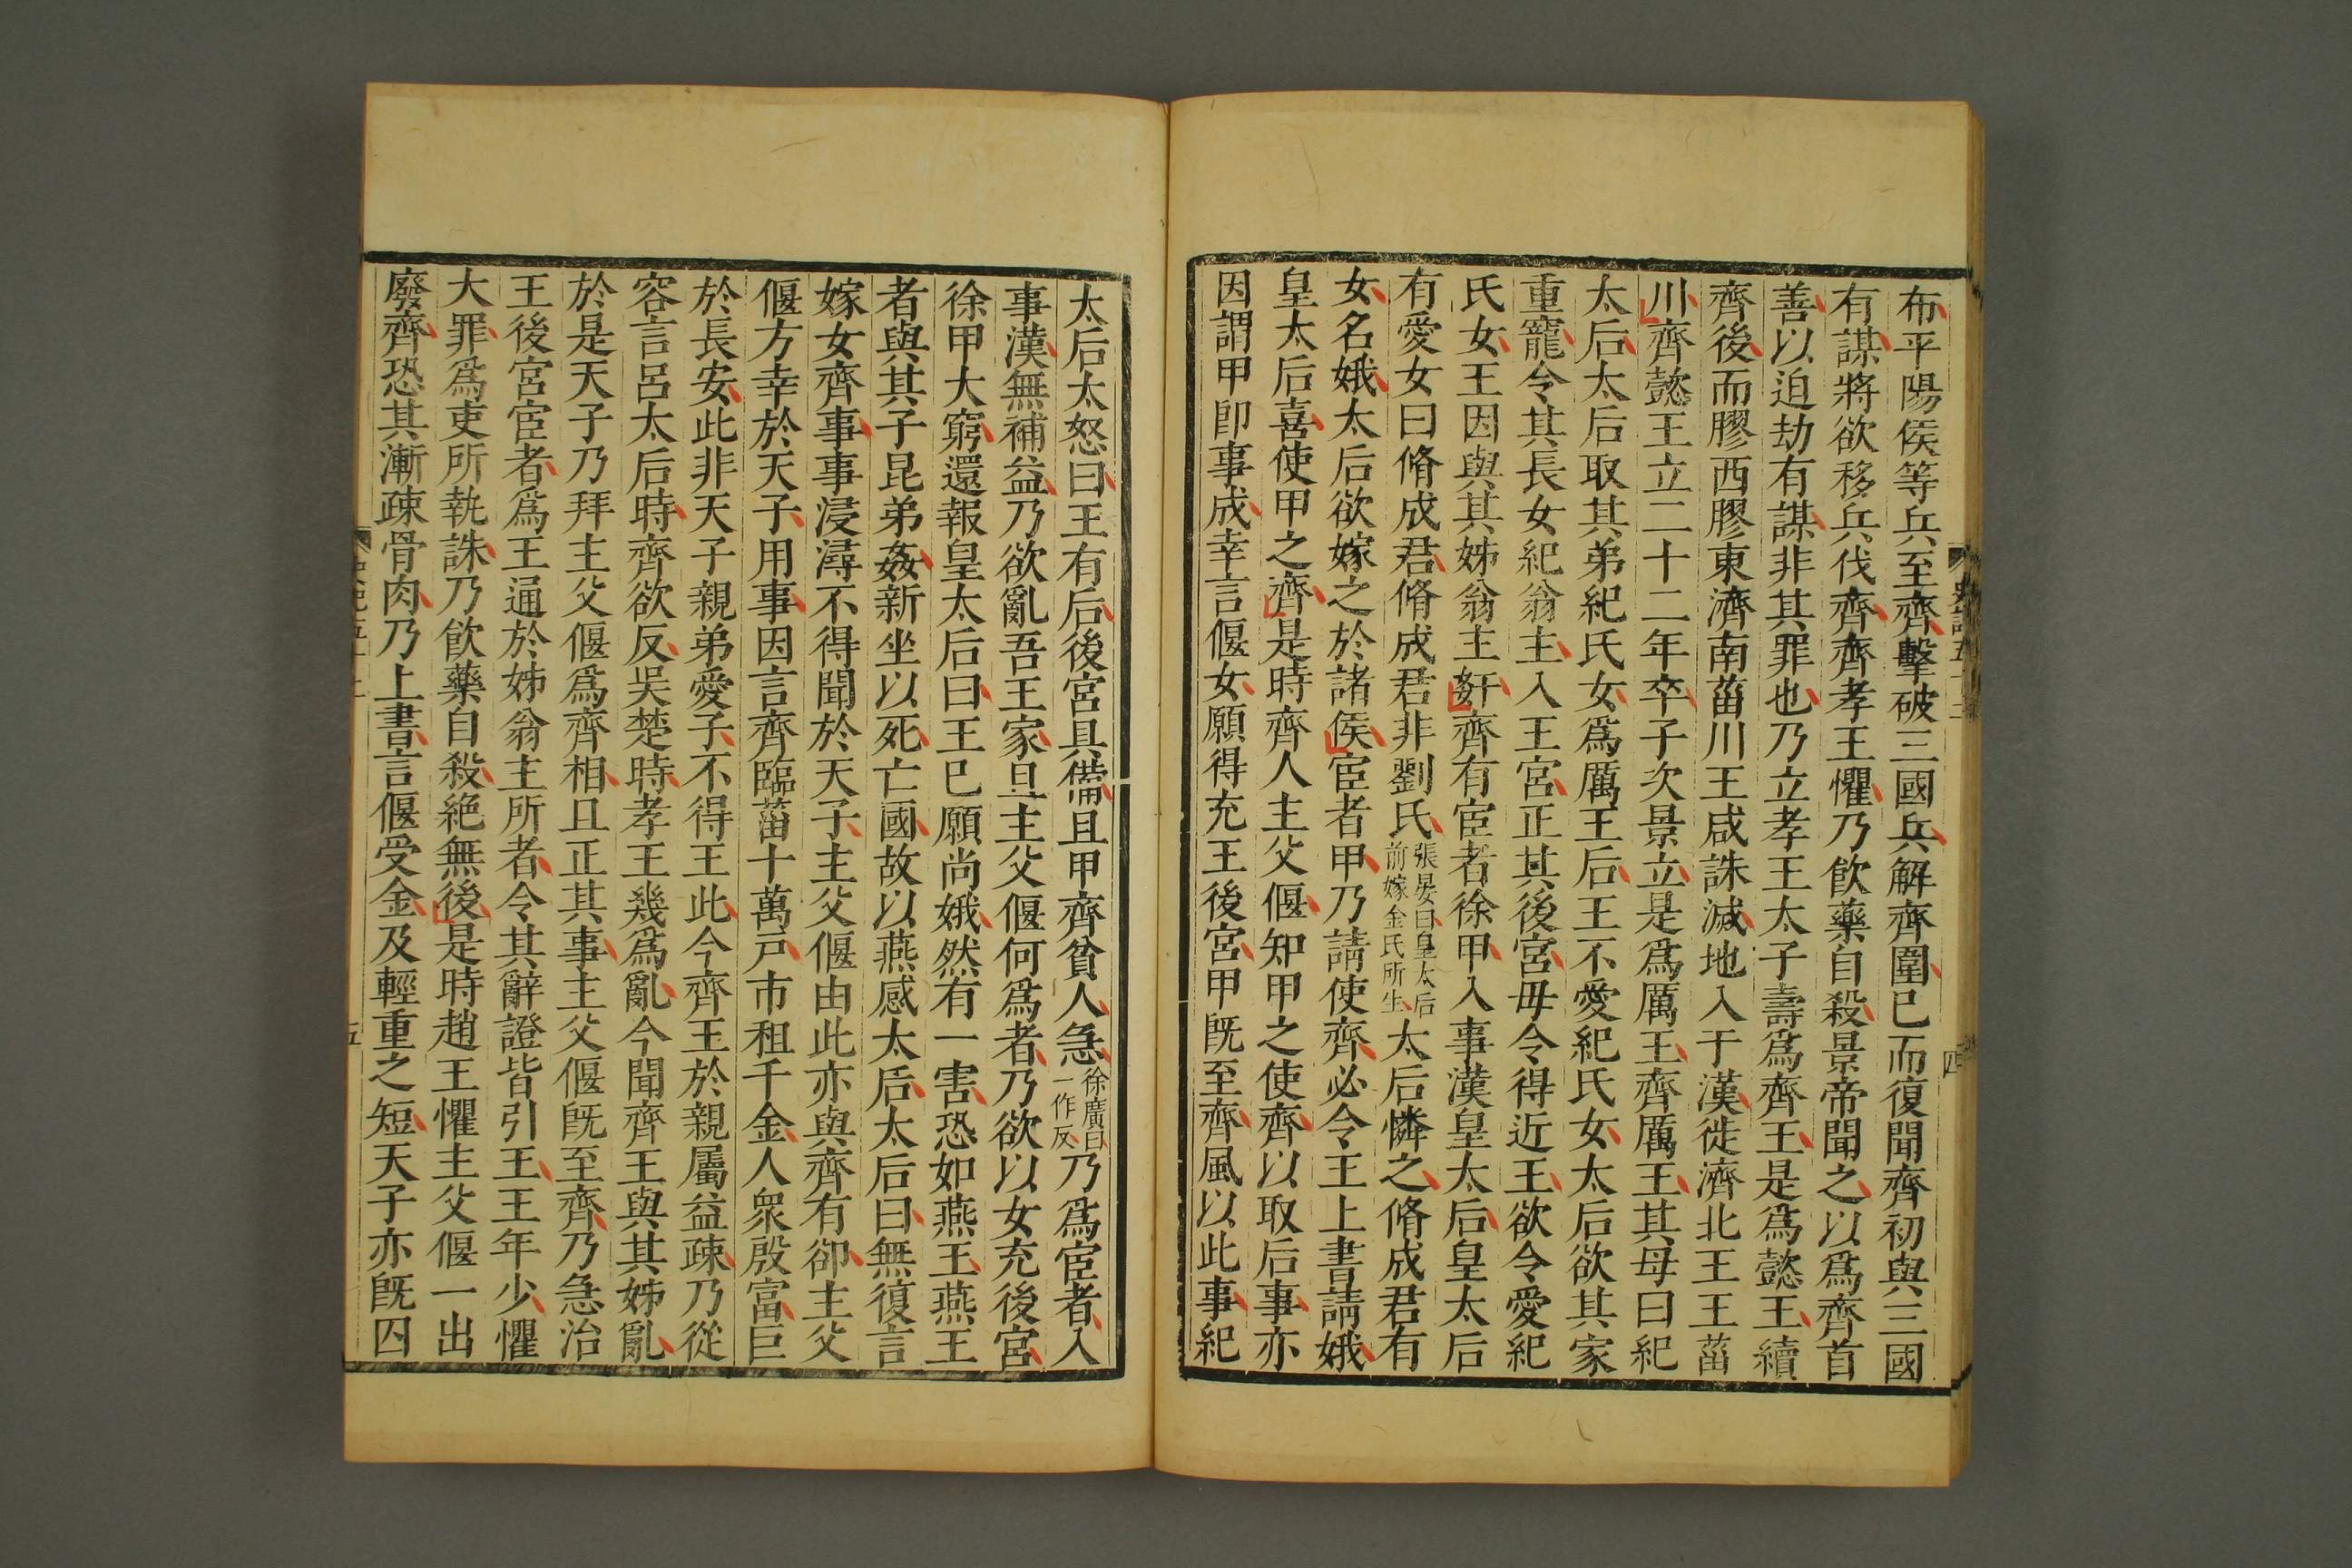 布平陽侯等兵至齊擊破三國兵解齊圍已而復聞齊初與三國
有謀將欲移兵伐齊齊孝王懼乃飮藥自殺景帝聞之以爲齊首
善以迫劫有謀非其罪也乃立孝王太子壽爲齊王是爲懿王續
齊後而膠西膠東濟南菑川王咸誅滅地入于漢徙濟北王王菑
川齊懿王立二十二年卒子次景立是爲厲王齊厲王其母曰紀
太后太后取其弟紀氏女爲厲王后王不愛紀氏女太后欲其家
重寵令其長女紀翁主入王宮正其後宮毋令得近王欲令愛紀
氏女王因與其姊翁主姧齊有宦者徐甲入事漢皇太后皇太后
有愛女曰脩成君脩成君非劉氏張晏曰皇太后前嫁金氏所生太后憐之脩成君有
女名娥太后欲嫁之於諸侯宦者甲乃請使齊必令王上書請娥
皇太后喜使甲之齊是時齊人主父偃知甲之使齊以取后事亦
因謂甲卽事成幸言偃女願得充王後宮甲旣至齊風以此事紀
太后太怒曰王有后後宮具備且甲齊貧人急徐廣曰一作反乃爲宦者入
事漢無補益乃欲亂吾王家且主父偃何爲者乃欲以女充後宮
徐甲大窮還報皇太后曰王已願尚娥然有一害恐如燕王燕王
者與其子昆弟姦新坐以死亡國故以燕感太后太后曰無復言
嫁女齊事事浸潯不得聞於天子主父偃由此亦與齊有卻主父
偃方幸於天子用事因言齊臨菑十萬戶市租千金人衆殷富巨
於長安此非天子親弟愛子不得王此今齊王於親屬益疎乃從
容言呂太后時齊欲反吳楚時孝王幾爲亂今聞齊王與其姊亂
於是天子乃拜主父偃爲齊相且正其事主父偃旣至齊乃急治
王後宮宦者爲王通於姊翁主所者令其辭證皆引王王年少懼
大罪爲吏所執誅乃飮藥自殺絕無後是時趙王懼主父偃一出
廢齊恐其漸疎骨肉乃上書言偃受金及輕重之短天子亦旣囚